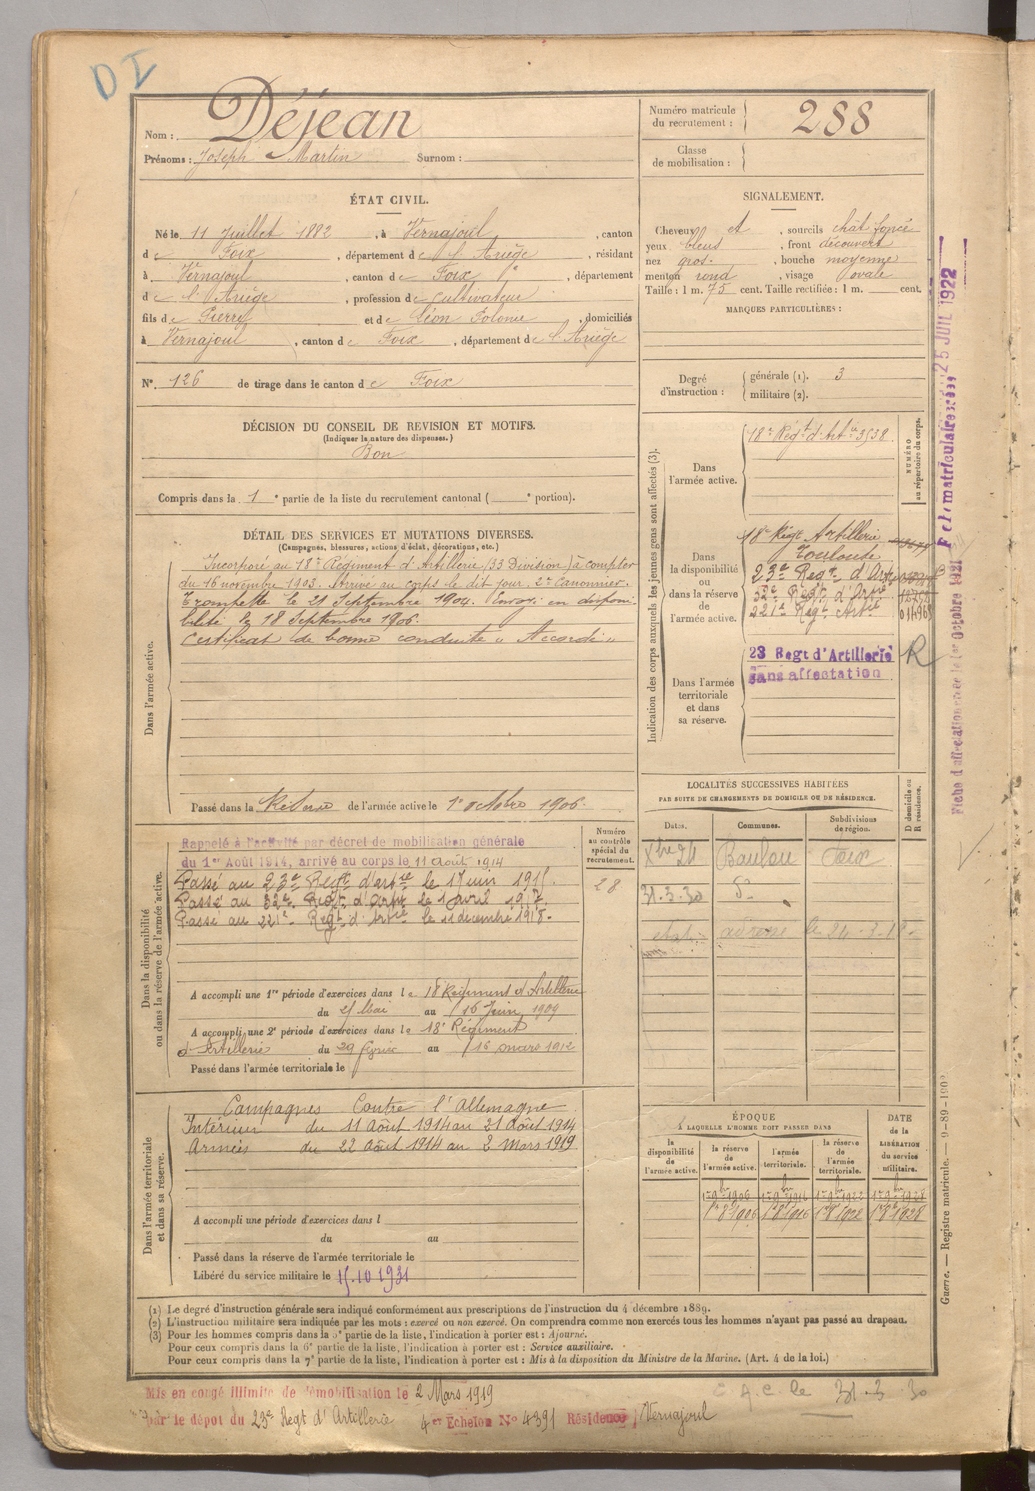 DI
Nom : Déjean
Prénoms : Joseph Martin Surnom :
Numéro matricule du recrutement : 288
Classe de mobilisation :
ÉTAT CIVIL.
Né le 11 Juillet 1882, à Vernajoul, canton
de Foix, département de l'Ariège, résidant
à Vernajoul, canton de Foix, département
de l'Ariège, profession de cultivateur
fils de Pierre et de Léon Polonie, domiciliés
à Vernajoul, canton de Foix, département de l'Ariège
N° 126 de tirage dans le canton de Foix
SIGNALEMENT.
Cheveux et, sourcils chât foncé
yeux bleus, front découvert
nez gros, bouche moyenne
menton rond, visage ovale
Taille : 1 m. 75 cent. Taille rectifiée : 1 m. cent.
MARQUES PARTICULIÈRES :
Degré d'instruction : générale (1). 3
militaire (2).
DÉCISION DU CONSEIL DE REVISION ET MOTIFS.
(Indiquer la nature des dispenses.)
Bon
Compris dans la 1e partie de la liste du recrutement cantonal ( e portion).
DÉTAIL DES SERVICES ET MUTATIONS DIVERSES.
(Campagnes, blessures, actions d'éclat, décorations, etc.)
Dans l'armée active.
Incorporé au 18e Régiment d'Artillerie (33 Division) à compter
du 16 novembre 1903. Arrivé au corps le dit jour. 2e Canonnier.
Trompette le 21 Septembre 1904. Envoyé en disponi-
bilité le 18 Septembre 1906.
Certificat de bonne conduite "Accordé"
Passé dans la Réserve de l'armée active le 1er octobre 1906.
Indication des corps auxquels les jeunes gens sont affectés (3).
NUMÉRO au répertoire du corps.
Dans l'armée active.
18e Régt d'Artie 3538
Dans la disponibilité ou dans la réserve de l'armée active.
18e Régt Artillerie
Toulouse
23e Regt d'Art
32e Regt d'Artie
221e Regt Artie
Dans l'armée territoriale et dans sa réserve.
23 Regt d'Artillerie R
sans affectation
LOCALITÉS SUCCESSIVES HABITÉES
PAR SUITE DE CHANGEMENTS DE DOMICILE OU DE RÉSIDENCE.
Dates. Communes. Subdivisions de région. D domicile ou R résidence.
Xbre 24 Baulou Foix
31.3.30 do
Dans la disponibilité ou dans la réserve de l'armée active.
Numéro au contrôle spécial du recrutement.
28
Rappelé à l'activité par décret de mobilisation générale
du 1er Août 1914, arrivé au corps le 11 août 1914
Passé au 23e Regt d'artie le 1 juin 1915.
Passé au 32e Regt d'Artie le 1 avril 1917.
Passé au 221e Regt d'Artie le 11 décembre 1918.
A accompli une 1re période d'exercices dans le 18 Régiment d'Artillerie
du 25 Mai au 16 Juin 1909
A accompli une 2e période d'exercices dans le 18e Régiment
d'Artillerie du 29 février au 16 mars 1912
Passé dans l'armée territoriale le
Dans l'armée territoriale et dans sa réserve.
Campagnes Contre l'Allemagne
Intérieur du 11 Août 1914 au 21 août 1914
Armées du 22 août 1914 au 3 Mars 1919
A accompli une période d'exercices dans l
du au
Passé dans la réserve de l'armée territoriale le
Libéré du service militaire le 15.10 1931
ÉPOQUE
A LAQUELLE L'HOMME DOIT PASSER DANS
la disponibilité de l'armée active. la réserve de l'armée active. l'armée territoriale. la réserve de l'armée territoriale.
DATE de la LIBÉRATION du service militaire.
(1) Le degré d'instruction générale sera indiqué conformément aux prescriptions de l'instruction du 4 décembre 1889.
(2) L'instruction militaire sera indiquée par les mots : exercé ou non exercé. On comprendra comme non exercés tous les hommes n'ayant pas passé au drapeau.
(3) Pour les hommes compris dans la 5e partie de la liste, l'indication à porter est : Ajourné.
Pour ceux compris dans la 6e partie de la liste, l'indication à porter est : Service auxiliaire.
Pour ceux compris dans la 7e partie de la liste, l'indication à porter est : Mis à la disposition du Ministre de la Marine. (Art. 4 de la loi.)
Mis en congé illimité de démobilisation le 2 Mars 1919
par le dépôt du 23e Regt d'Artillerie 4e Echelon N° 4391 Résidence Vernajoul
C.A.C. le 31.3.30
Guerre. — Registre matricule. — 9-89-1900
25 JUIL 1922
Fiche d'affectation créée le 1er Octobre 1921